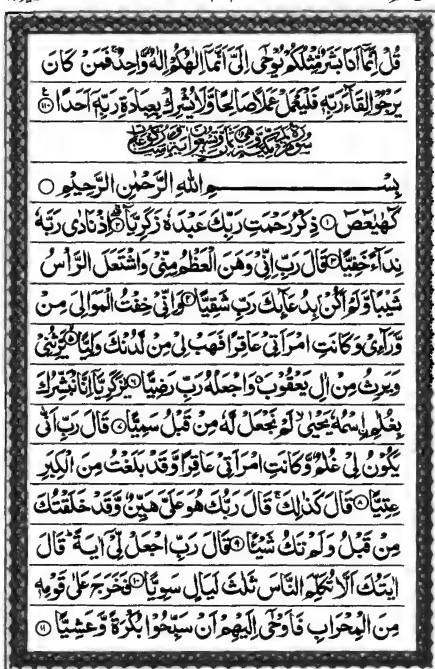 قُلْ اِنَّمَاۤ اَنَا بَشَرٌ مِّثْلُكُمْ يُوْحٰۤى اِلَيَّ اَنَّمَاۤ اِلٰهُكُمْ اِلٰهٌ وَّاحِدٌ ۚ فَمَنْ كَانَ
يَرْجُوْا لِقَآءَ رَبِّهٖ فَلْيَعْمَلْ عَمَلًا صَالِحًا وَّلَا يُشْرِكْ بِعِبَادَةِ رَبِّهٖۤ اَحَدًا ۝۱۱۰
بِسْمِ اللّٰهِ الرَّحْمٰنِ الرَّحِيْمِ ۝
كٓهٰيٰعٓصٓ ۝۱ ذِكْرُ رَحْمَتِ رَبِّكَ عَبْدَهٗ زَكَرِيَّا ۝۲ اِذْ نَادٰى رَبَّهٗ
نِدَآءً خَفِيًّا ۝۳ قَالَ رَبِّ اِنِّيْ وَهَنَ الْعَظْمُ مِنِّيْ وَاشْتَعَلَ الرَّاْسُ
شَيْبًا وَّلَمْ اَكُنْۢ بِدُعَآئِكَ رَبِّ شَقِيًّا ۝۴ وَاِنِّيْ خِفْتُ الْمَوَالِيَ مِنْ
وَّرَآءِيْ وَكَانَتِ امْرَاَتِيْ عَاقِرًا فَهَبْ لِيْ مِنْ لَّدُنْكَ وَلِيًّا ۝۵ يَّرِثُنِيْ
وَيَرِثُ مِنْ اٰلِ يَعْقُوْبَ ۖ وَاجْعَلْهُ رَبِّ رَضِيًّا ۝۶ يٰزَكَرِيَّاۤ اِنَّا نُبَشِّرُكَ
بِغُلٰمِ ِۨاسْمُهٗ يَحْيٰى ۙ لَمْ نَجْعَلْ لَّهٗ مِنْ قَبْلُ سَمِيًّا ۝۷ قَالَ رَبِّ اَنّٰى
يَكُوْنُ لِيْ غُلٰمٌ وَّكَانَتِ امْرَاَتِيْ عَاقِرًا وَّقَدْ بَلَغْتُ مِنَ الْكِبَرِ
عِتِيًّا ۝۸ قَالَ كَذٰلِكَ ۚ قَالَ رَبُّكَ هُوَ عَلَيَّ هَيِّنٌ وَّقَدْ خَلَقْتُكَ
مِنْ قَبْلُ وَلَمْ تَكُ شَيْئًا ۝۹ قَالَ رَبِّ اجْعَلْ لِّيْۤ اٰيَةً ؕ قَالَ
اٰيَتُكَ اَلَّا تُكَلِّمَ النَّاسَ ثَلٰثَ لَيَالٍ سَوِيًّا ۝۱۰ فَخَرَجَ عَلٰى قَوْمِهٖ
مِنَ الْمِحْرَابِ فَاَوْحٰۤى اِلَيْهِمْ اَنْ سَبِّحُوْا بُكْرَةً وَّعَشِيًّا ۝۱۱